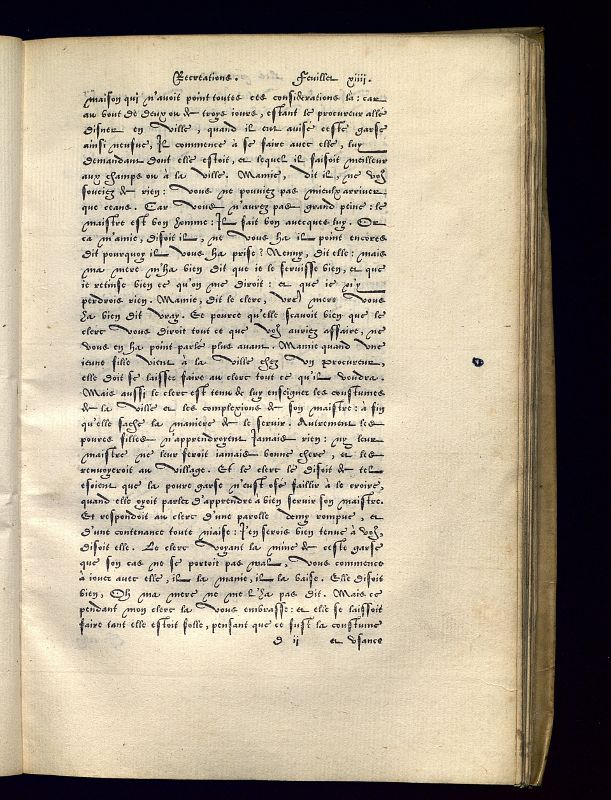 Recreations. Feuillet xiiii.
maison qui n'avoit point toutes ces considerations là: car
au bout de deux ou de troys iours, estant le procureur allé
disner en ville, quand il eut avisé ceste garse
ainsi neufve, Il commence à se faire avec elle, luy
demandant dont elle estoit, et lequel il faisoit meilleur
aux champs ou à la ville. Mamie, dit il, ne voꝰ
souciez de rien: vous ne pouviez pas mieulx arriver
que ceans. Car vous n'aurez pas grand peine: le
maistre est bon homme: Il fait bon avecques luy. Or
ca m'amie, disoit il, ne vous ha il point encores
dit pourquoy il vous ha prise? Nenny, dit elle: mais
ma mere m'ha bien dit que ie le servisse bien, et que
ie retinse bien ce qu'on me diroit: et que ie n'y
perdrois rien. Mamie, dit le clerc, vrẽ mere vous
ha bien dit vray. Et pource qu'elle scavoit bien que le
clerc vous diroit tout ce que voꝰ auriez affaire, ne
vous en ha point parlé plus avant. Mamie quand une
ieune fille vient à la ville chez un procureur,
elle doit se laisser faire au clerc tout ce qu'il voudra.
Mais aussi le clerc est tenu de luy enseigner les coustumes
de la ville et les complexions de son maistre: à fin
qu'elle sache la maniere de le servir. Autrement les
povres filles n'apprendroyent Iamais rien: ny leur
maistre ne leur feroit iamais bonne chere, et les
renvoyeroit au village. Et le clerc le disoit de tel
escient que la povre garse n'eust osé faillir à le croire,
quand elle oyoit parler d'apprendre à bien servir son maistre.
Et respondoit au clerc d'une parolle demy rompue, et
d'une contenance toute niaise: I'en serois bien tenue à voꝰ,
disoit elle. Le clerc voyant la mine de ceste garse
que son cas ne se portoit pas mal, vous commence
à iouer avec elle, il la manie, il la baise. Elle disoit
bien, Oh ma mere ne me l'ha pas dit. Mais ce
pendant mon clerc la vous embrasse: et elle se laissoit
faire tant elle estoit folle, pensant que ce fust la coustume
d ii et usance